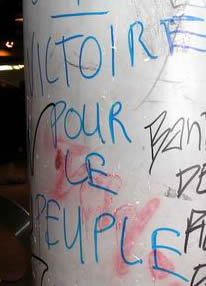 VICTOIRE
POUR
LE
PEUPLE
Ban
DE